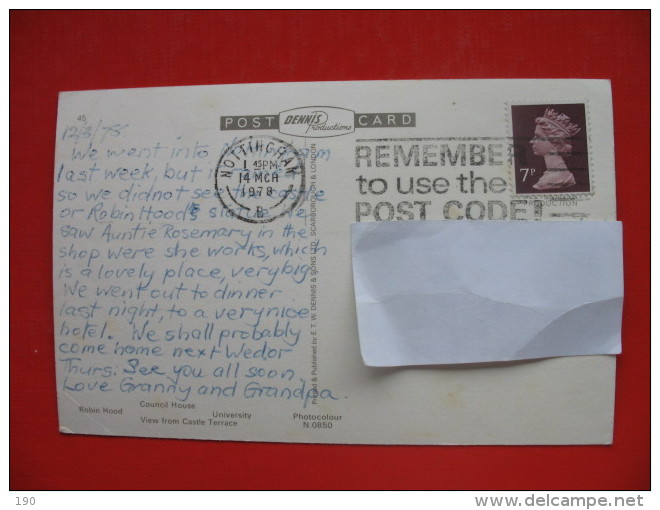 45
POST DENNIS Productions CARD
12/3/78
We went into
last week, but it
so we didnot see
or Robin Hood's statue. We
saw Auntie Rosemary in the
shop were she works, which
is a lovely place, very big.
We went out to dinner
last night, to a very nice
hotel. We shall probably
come home next Wed or
Thurs. See you all soon
Love Granny and Grandpa.
NOTTINGHAM
1 45PM
14 MCH
1978
REMEMBER
to use the
POST CODE!
7P
Printed & Published by E. T. W. DENNIS & SONS LTD. SCARBOROUGH & LONDON
Robin Hood Council House University Photocolour
View from Castle Terrace N.0850
190
delcampe.net